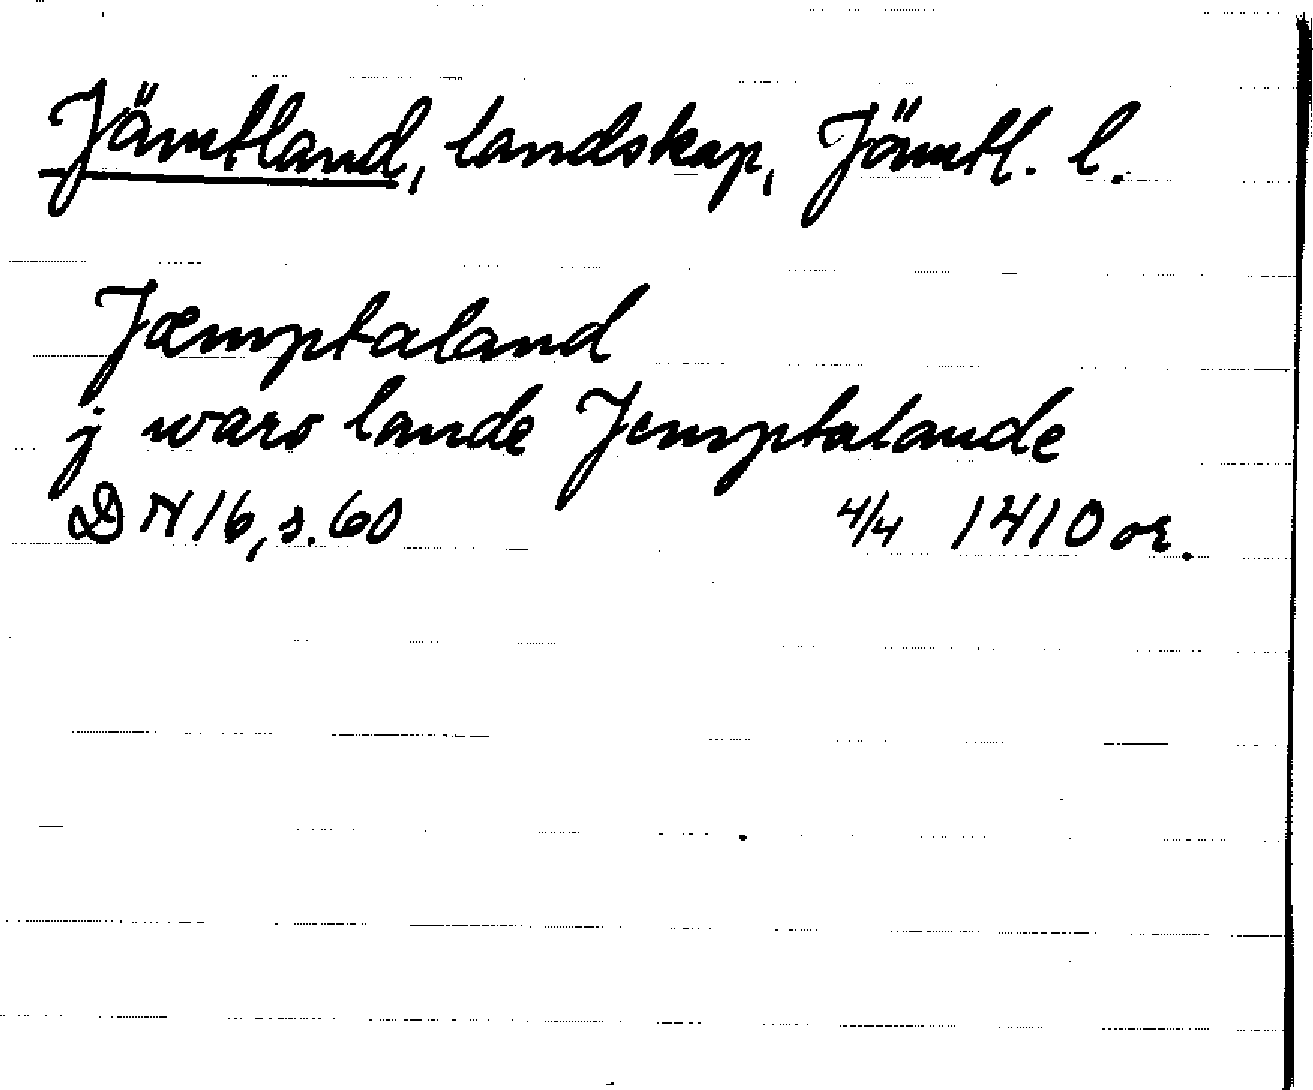 Jämtland, landskap, Jämtl. l.
Jæmptaland
j waro lande Jemptalande
DN 16, s. 60 4/4 1410 or.